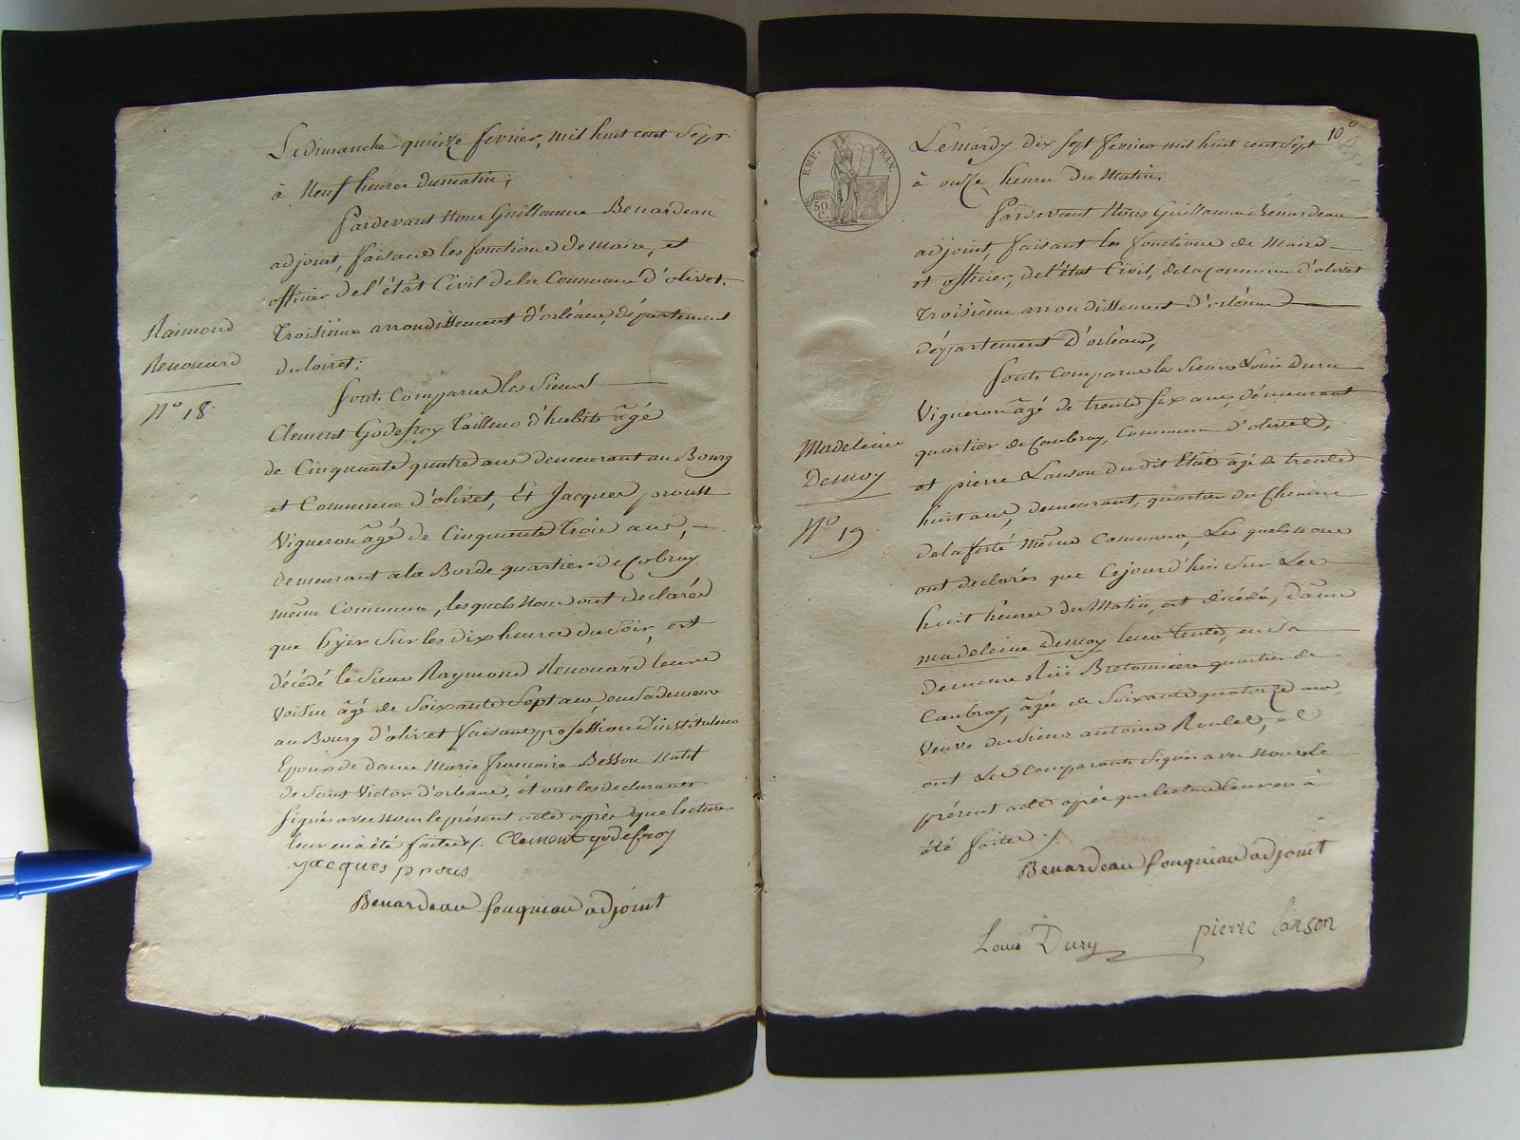 Le dimanche quinze fevrier, mil huit cent Sept
à Neuf heures du matin;
Pardevant Nous Guillaume Benardeau
adjoint, faisant les fonctions de Maire, et
officier de l'état Civil de la Commune d'olivet.
troisiéme arrondissement d'orléans, département
du loiret;
Sont Comparus les Sieurs
Clement Godefroy tailleur d'habits âgé
de Cinquante quatre ans demeurant au Bourg
et Commune d'olivet, Et Jacques proust
Vigneron âgé de Cinquante trois ans,
demeurant a la Borde quartier de Cobray
même Commune, lesquels Nous ont declarés
que hyer Sur les dix heures du Soir, est
décédé le Sieur Raymond Renouard leur
Voisin âgé de Soixante Sept ans, en Sa demeure
au Bourg d'olivet faisant profession d'instituteur
Epoux de dame Marie francoise Besson Natif
de Saint Victor d'orleans, et ont les declarants
Signés avec nous le présent acte après que lecture
leur en a été faite ./. Clement godefroy
Jacques prous
Benardeau fouqueau adjoint
Raimond
Renouard
N° 18.
10
EMP. FRAN.
50
C.
Le mardy dix Sept fevrier mil huit cent Sept
à onze heures du Matin,
Pardevant Nous Guillaume Benardeau
adjoint, faisant les fonctions de Maire
et officier, de l'état Civil, de la Commune d'olivet
troisième arrondissement d'orléans
département d'orléans,
Sont Comparus les Sieurs Louis Duru
Vigneron âgé de trente Six ans, demeurant
quartier de Combray, Commune d'olivet,
et pierre Lanson du dit Etat âgé de trente
huit ans, demeurant, quartier du Chemin
de la ferté même Commune, Les quels nous
ont declarés que Cejourd'hui Sur Les
huit heures du Matin, est décédée, dame
madeleine Denroy leur tante, en Sa
demeure Rüe Bretonniere quartier de
Caubray, âgée de Soixante quatorze ans
Veuve du Sieur antoine Roulet, et
ont Les Comparants Signés avec nous Le
présent acte après que lecture leur en à
été faite ./.
Benardeau fouqueau adjoint
Louis Dury pierre lanson
Madeleine
Denroy
N° 19